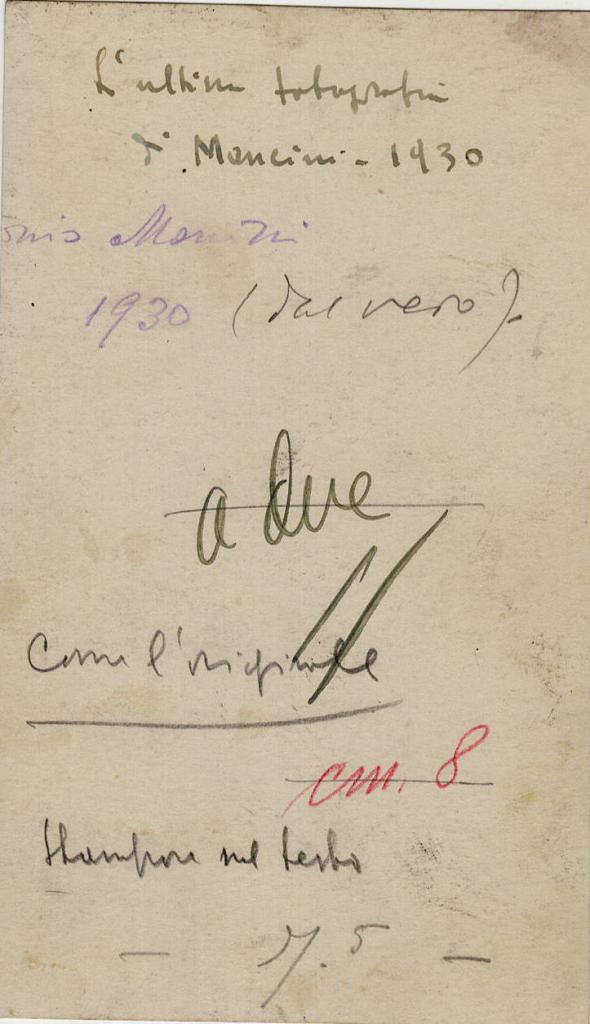 L'ultima fotografia
di Mancini - 1930
onio Mancini
1930 (dal vero).
a due
Come l'originale
cm. 8
Stampare nel testo
5